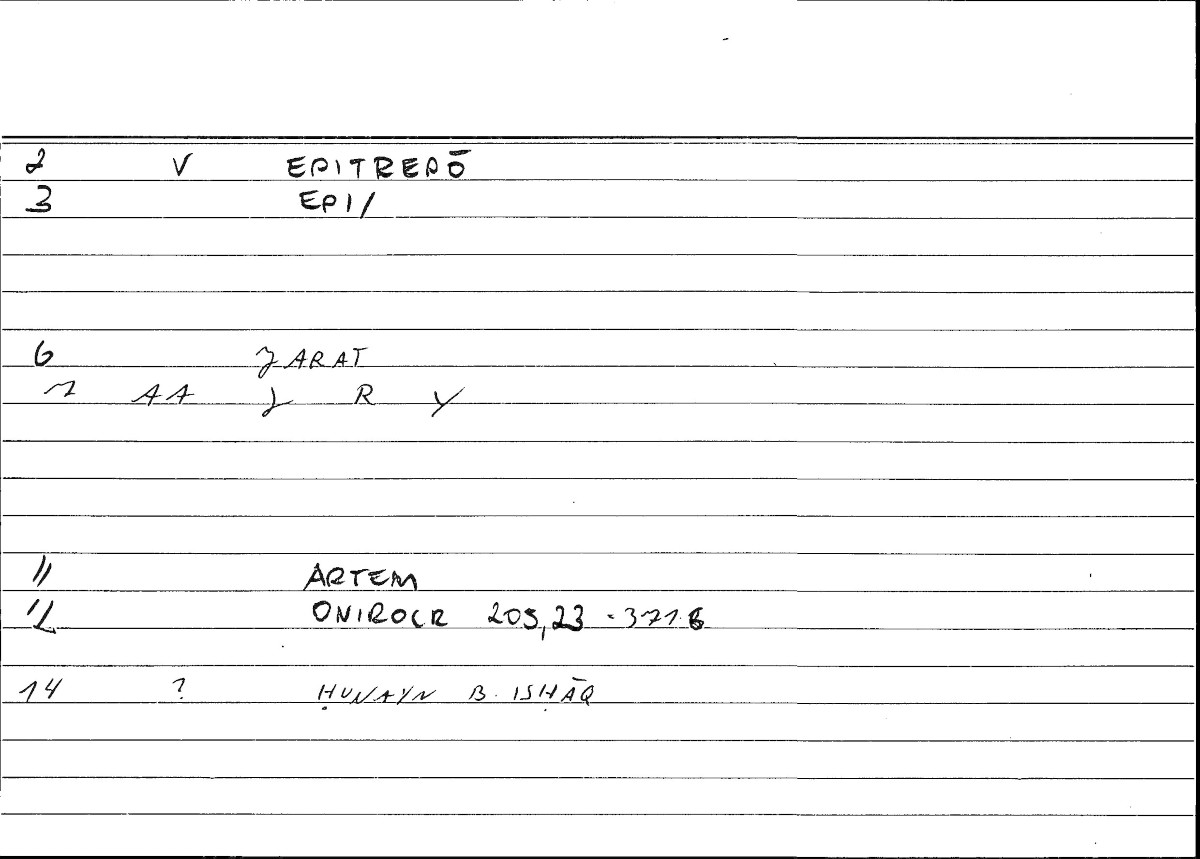 2 V EPITREPŌ
3 EPI/
6 ʒARAT
7 AA ʒ R Y
11 ARTEM
12 ONIROCR 205,23 - 371.6
14 ? ḤUNAYN B. ISḤĀQ